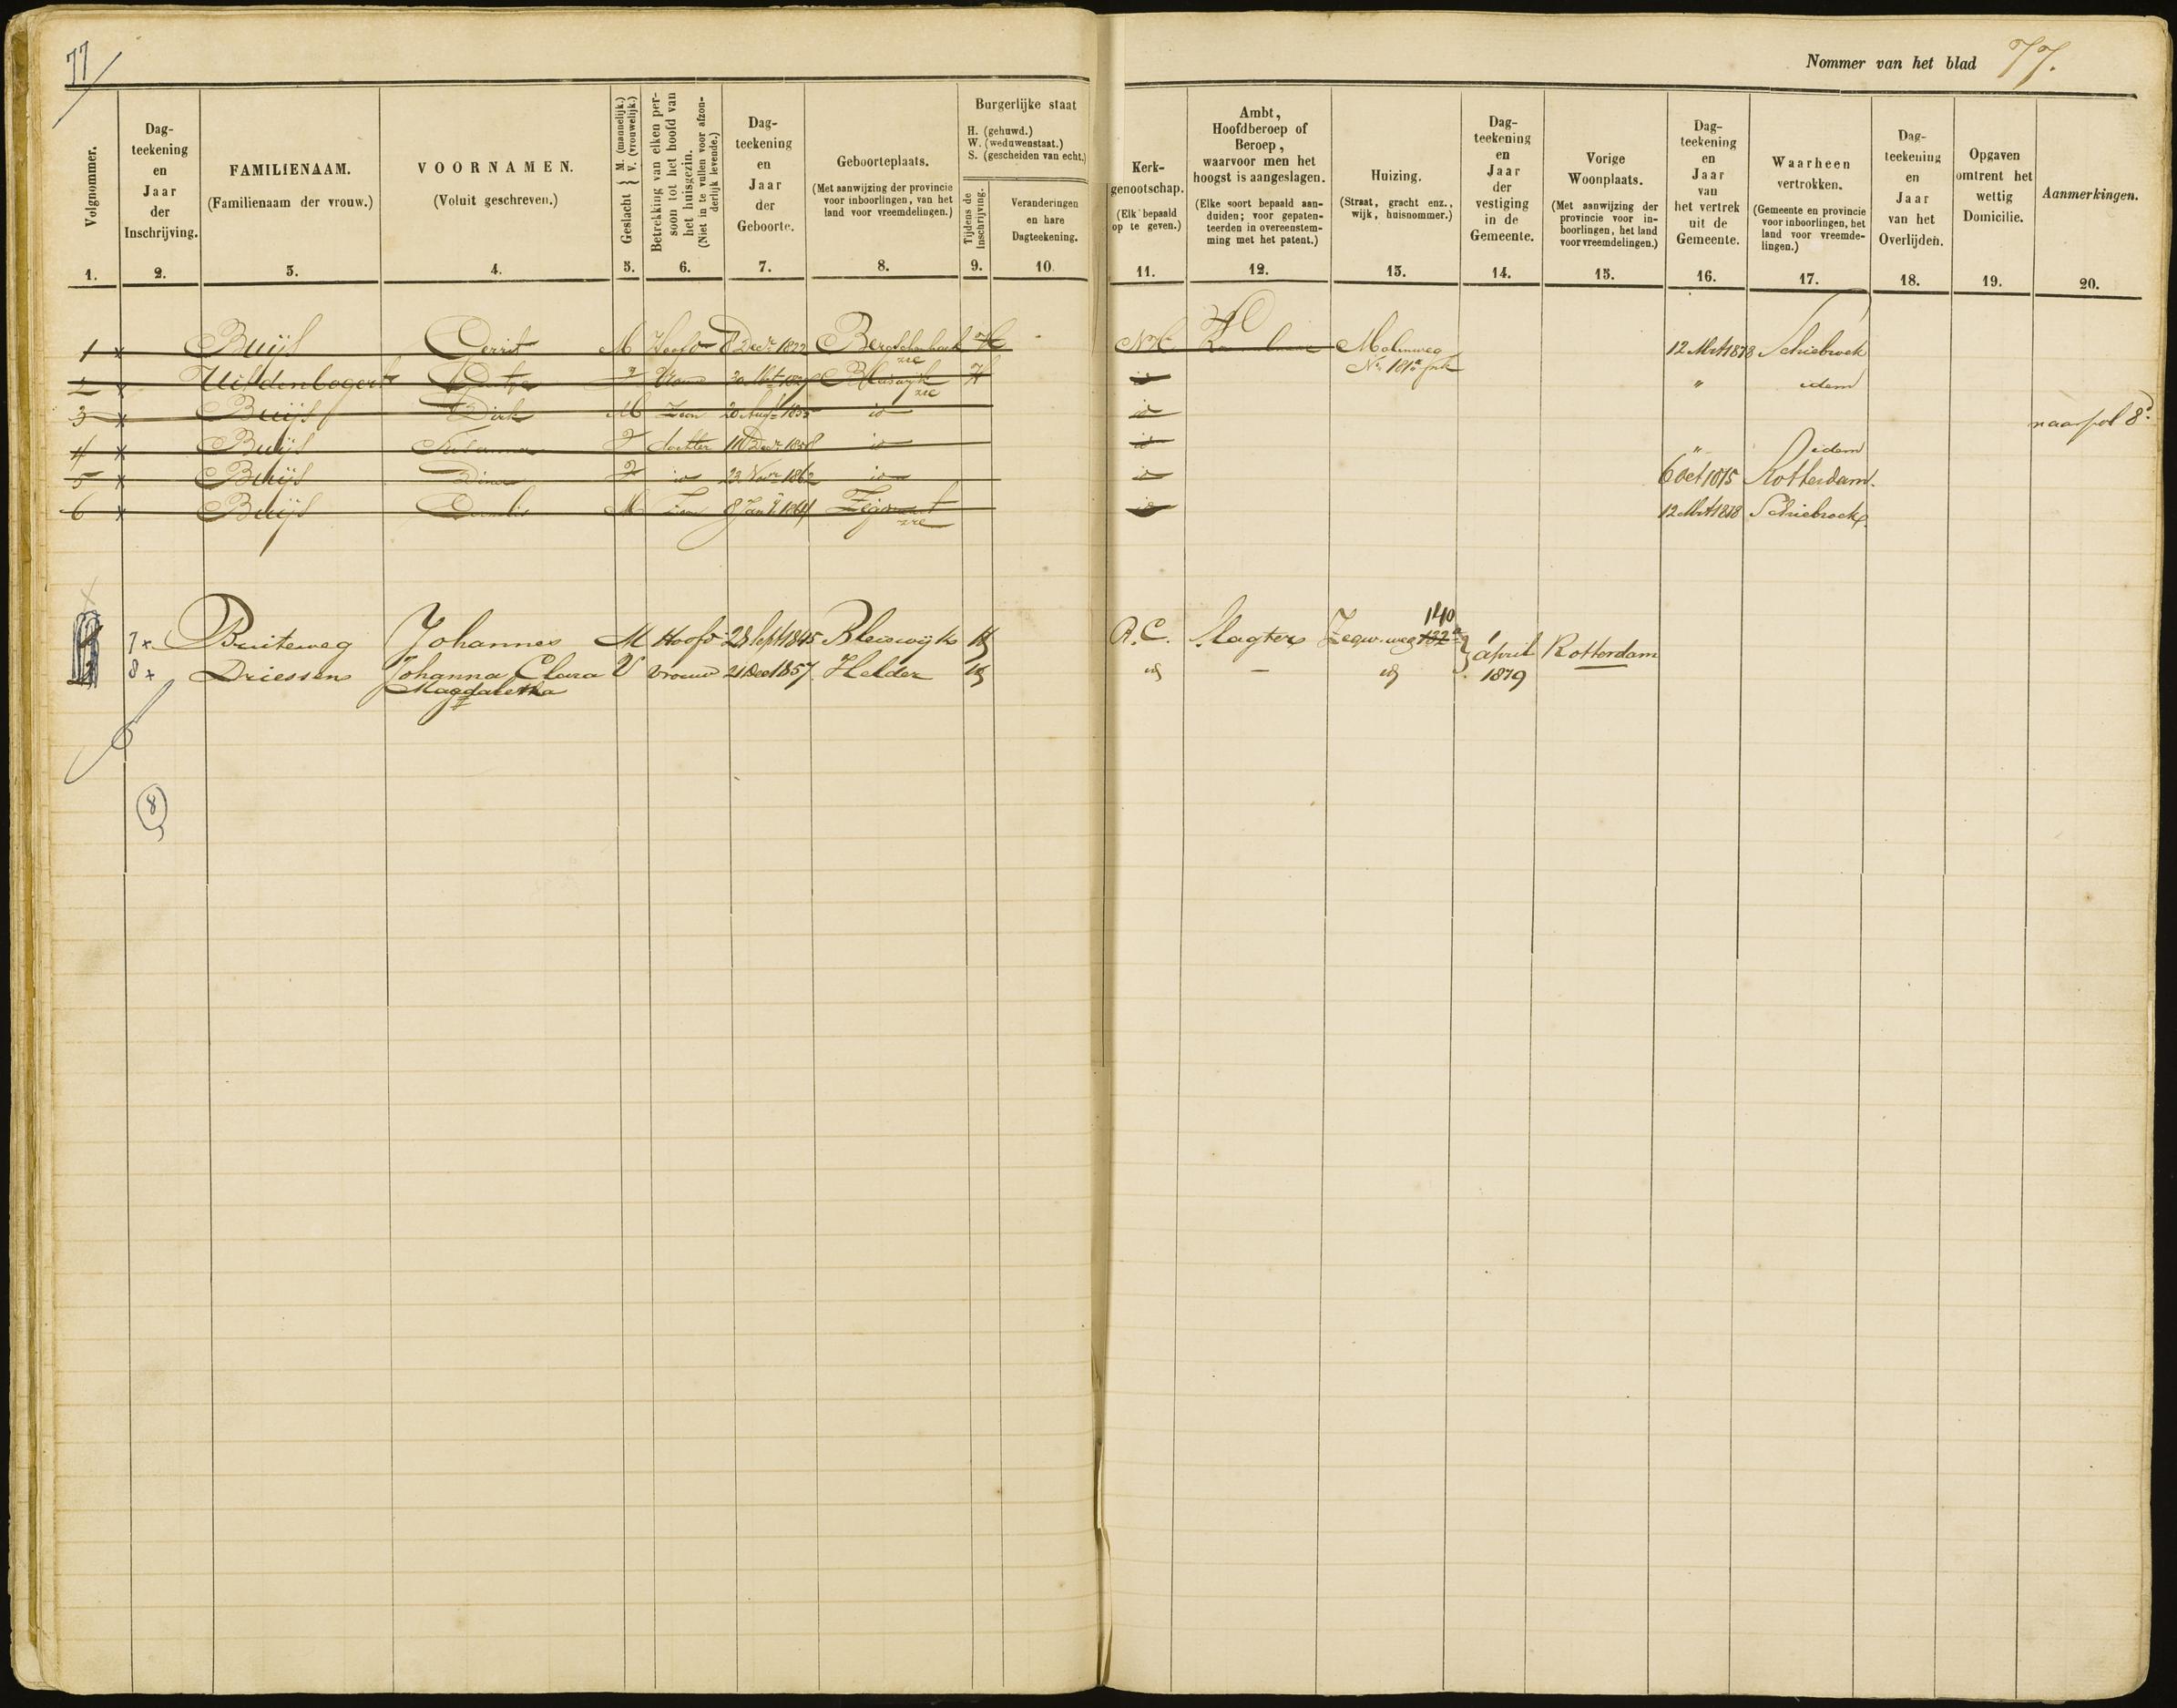 77
Nommer van het blad 77.
Volgnommer.
1.
Dag-
teekening
en
Jaar
der
Inschrijving.
2.
FAMILIENAAM.
(Familienaam der vrouw.)
3.
VOORNAMEN.
(Voluit geschreven.)
4.
Geslacht { M. (mannelijk.)
V. (vrouwelijk.)
5.
Betrekking van elken per-
soon tot het hoofd van
het huisgezin.
(Niet in te vullen voor afzon-
derlijk levende.)
6.
Dag-
teekening
en
Jaar
der
Geboorte.
7.
Geboorteplaats.
(Met aanwijzing der provincie
voor inboorlingen, van het
land voor vreemdelingen.)
8.
Burgerlijke staat
H. (gehuwd.)
W. (weduwenstaat.)
S. (gescheiden van echt.)
Tijdens de
inschrijving.
9.
Veranderingen
en hare
Dagteekening.
10.
Kerk-
genootschap.
(Elk bepaald
op te geven.)
11.
Ambt,
Hoofdberoep of
Beroep,
waarvoor men het
hoogst is aangeslagen.
(Elke soort bepaald aan-
duiden; voor gepaten-
teerden in overeenstem-
ming met het patent.)
12.
Huizing.
(Straat, gracht enz.,
wijk, huisnommer.)
13.
Dag-
teekening
en
Jaar
der
vestiging
in de
Gemeente.
14.
Vorige
Woonplaats.
(Met aanwijzing der
provincie voor in-
boorlingen, het land
voor vreemdelingen.)
15.
Dag-
teekening
en
Jaar
van
het vertrek
uit de
Gemeente.
16.
Waarheen
vertrokken.
(Gemeente en provincie
voor inboorlingen, het
land voor vreemde-
lingen.)
17.
Dag-
teekening
en
Jaar
van het
Overlijden.
18.
Opgaven
omtrent het
wettig
Domicilie.
19.
Aanmerkingen.
20.
1 x Buijs Gerrit M Hoofd 8 Decr 1822 Bergschenhoek H NH Molenweg 12 Mrt 1878 Schiebroek
2 x Uitdenbogert Vrouw Bleiswijk H id " idem
3 x Buijs Dirk M Zoon 20 Augt id id naar fol 8
4 x Buijs dochter Decr 1858 id id " idem
5 x Buijs Dina id 22 Novr 1862 id id 6 Oct 1875 Rotterdam.
6 x Buijs Cornelis M Zoon 8 Jan 1864 Zegwaart id 12 Mrt 1878 Schiebroek.
140
7 x Buiteweg Johannes M Hoofd 28 Sept 1845 Bleiswijk H R.C. Slagter Zegw. weg 132a 1 april Rotterdam
8 x Driessen Johanna Clara V vrouw 21 Dec 1857 Helder H id — id 1879
Magdalena
8